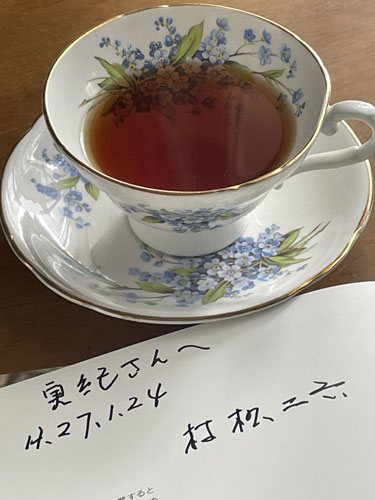 実紀さんへ
H.27.1.24
村松二六
すると